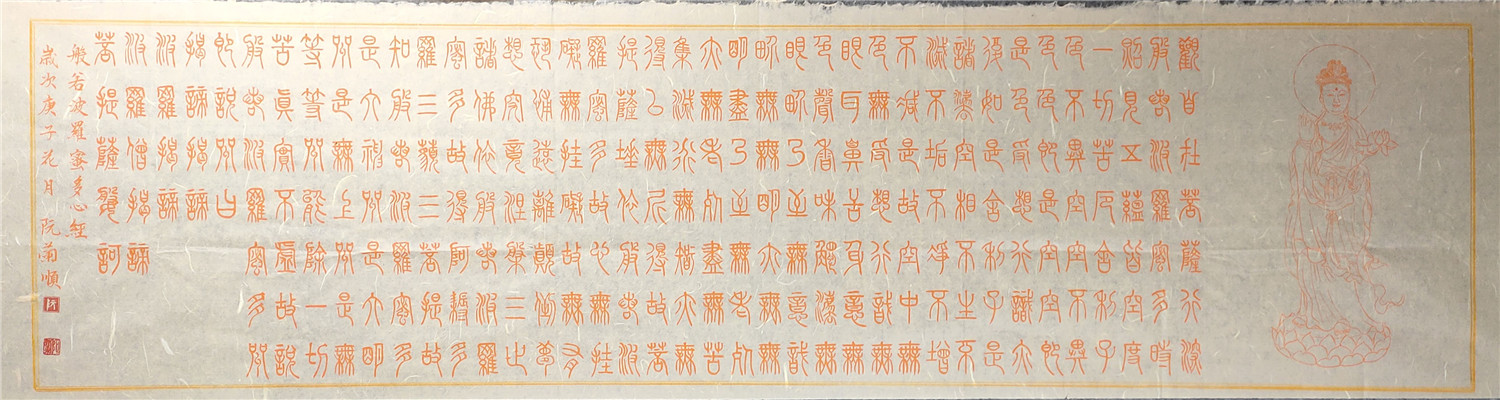 觀自在菩薩行深
般若波羅蜜多時
照見五蘊皆空度
一切苦厄舍利子
色不異空空不異
色色即是空空即
是色受想行識亦
復如是舍利子是
諸法空相不生不
滅不垢不淨不增
不減是故空中無
色無受想行識無
眼耳鼻舌身意無
色聲香味觸法無
眼界乃至無意識
界無無明亦無無
明盡乃至無老死
亦無老死盡無苦
集滅道無智亦無
得以無所得故菩
提薩埵依般若波
羅蜜多故心無罣
礙無罣礙故無有
恐怖遠離顛倒夢
想究竟涅槃三世
諸佛依般若波羅
蜜多故得阿耨多
羅三藐三菩提故
知般若波羅蜜多
是大神咒是大明
咒是無上咒是無
等等咒能除一切
苦真實不虛故說
般若波羅蜜多咒
即說咒曰
揭諦揭諦
波羅揭諦
波羅僧揭諦
菩提薩婆訶
般若波羅蜜多心經
歲次庚子花月 阮菊順